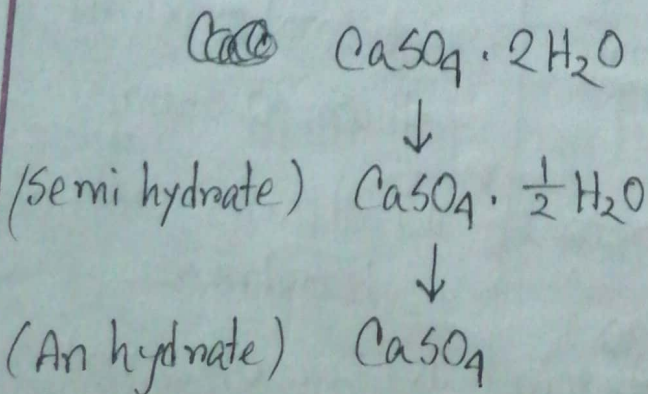 CaSO₄ · 2H₂O
↓
(Semi hydrate) CaSO₄ · ½ H₂O
↓
(An hydrate) CaSO₄